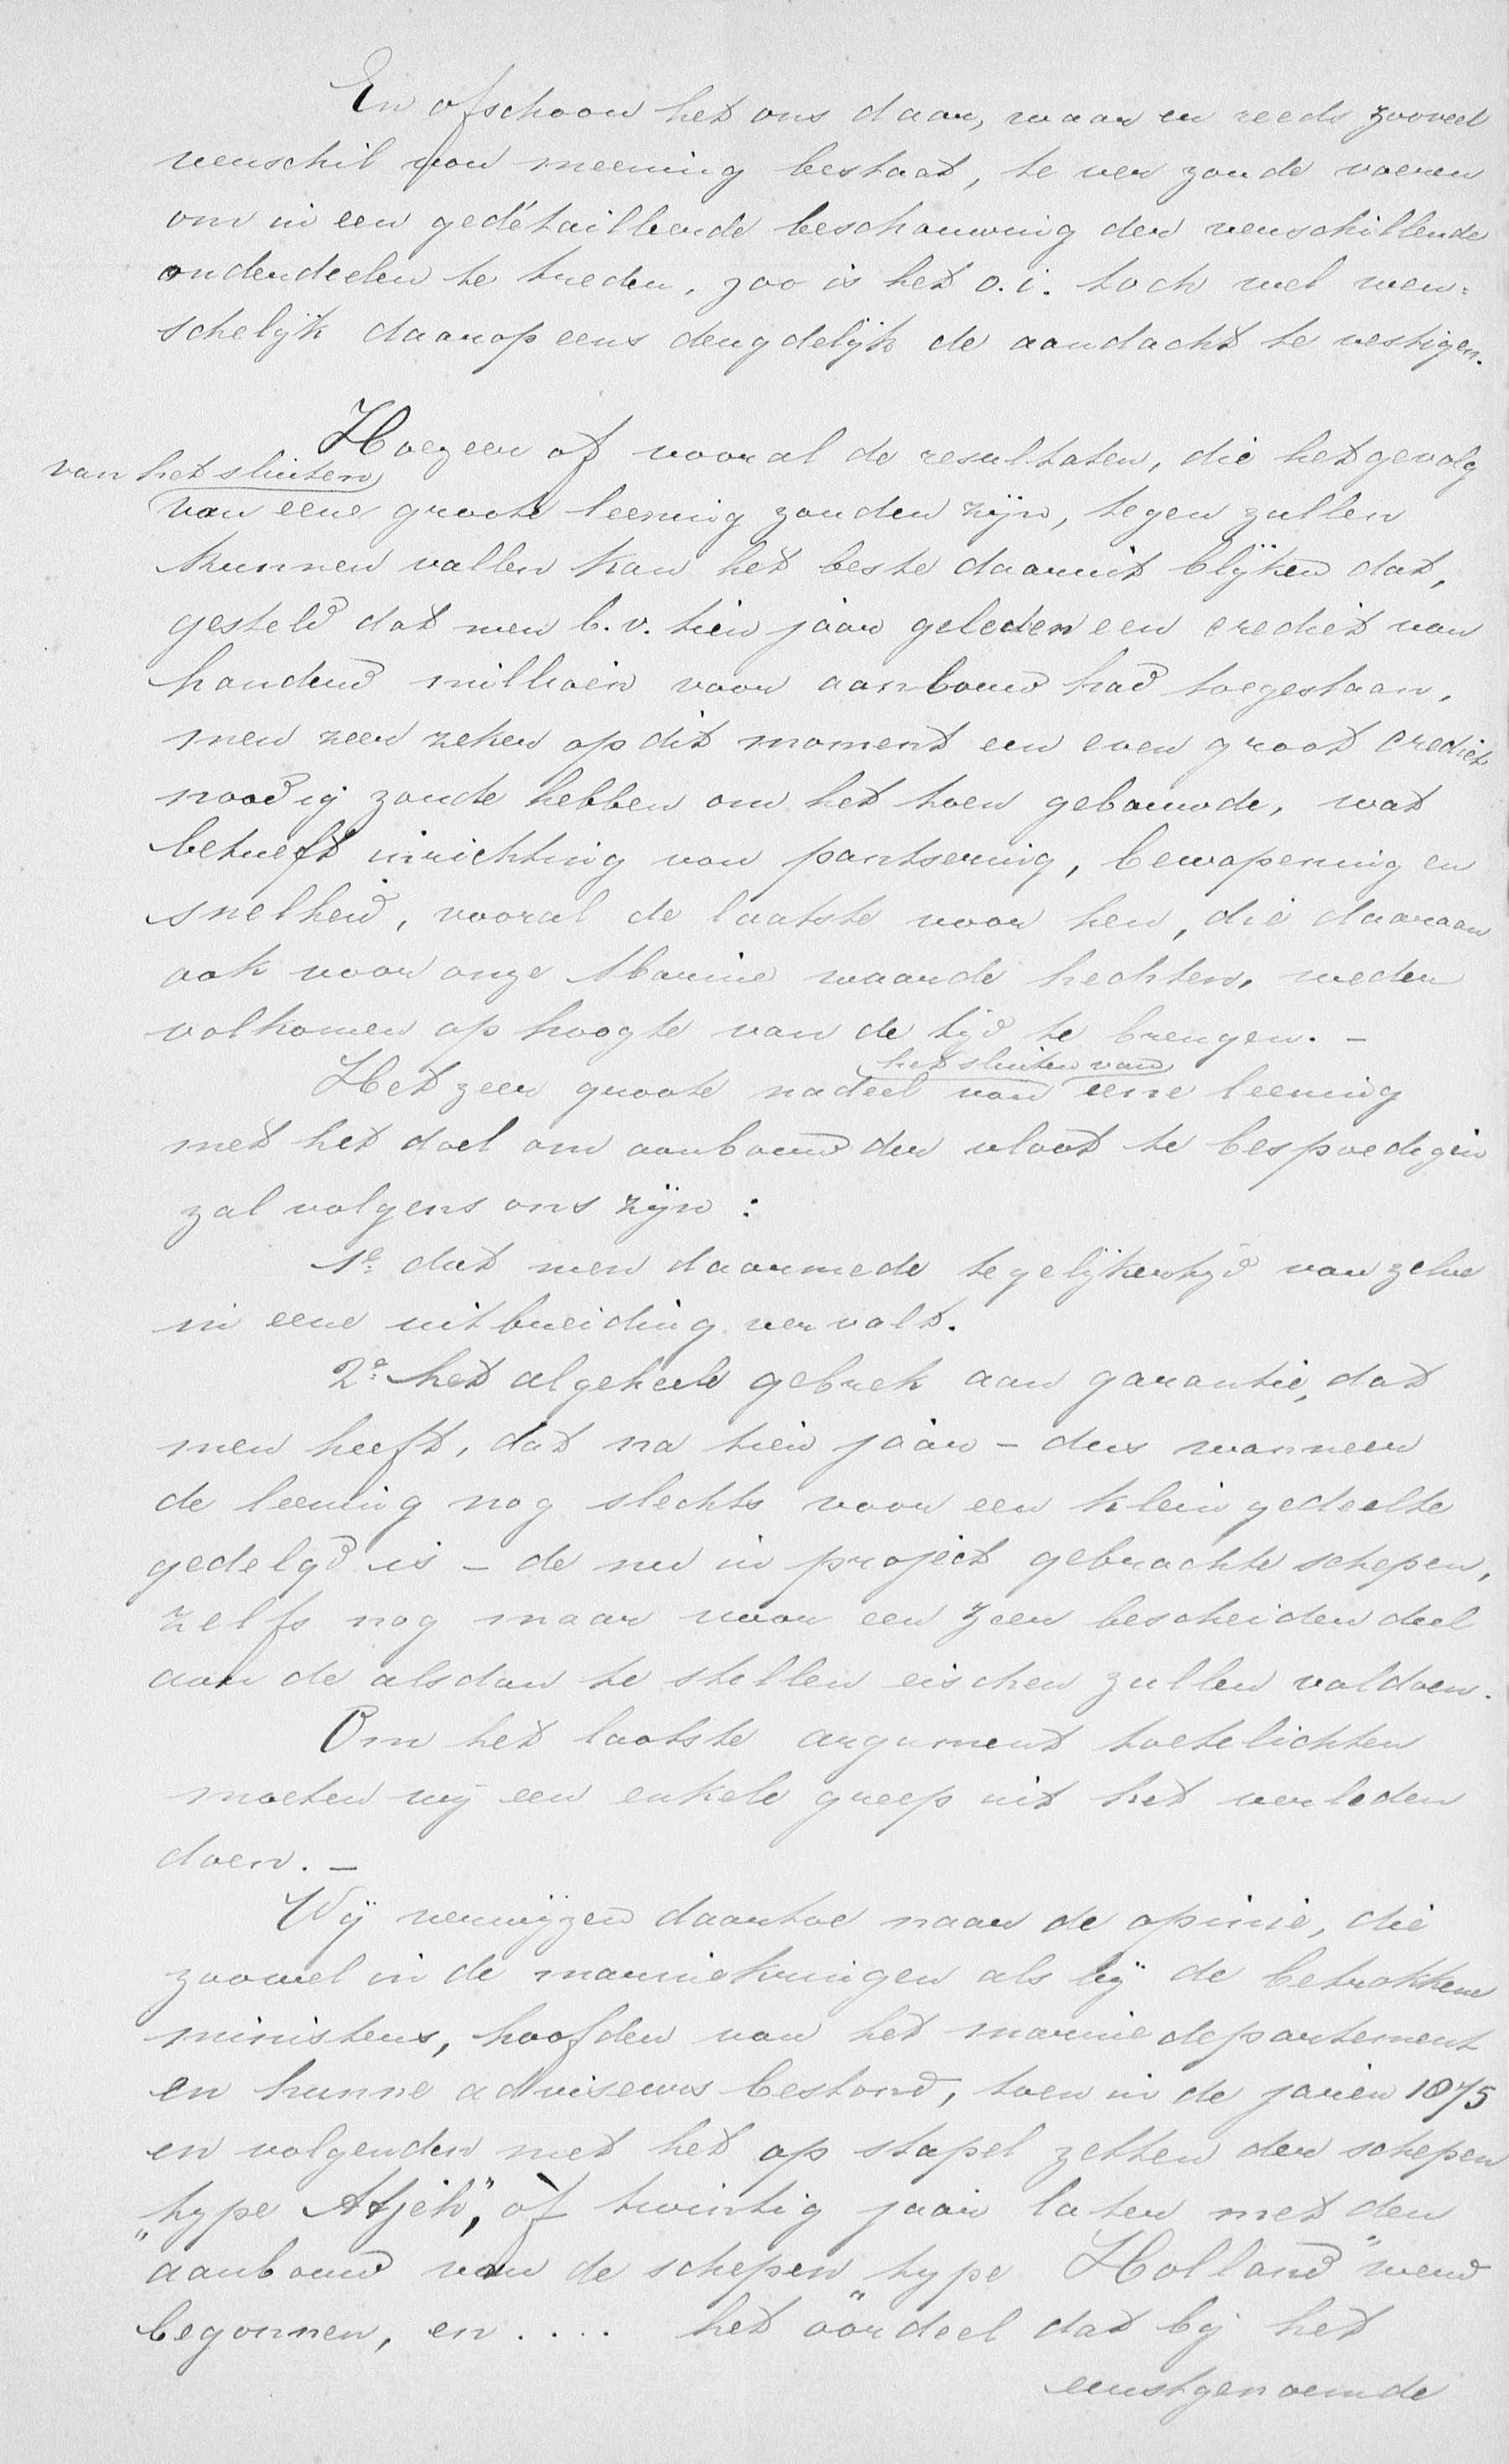 En ofschoon het ons daar, waar er reeds zooveel
verschil van meening bestaat, te ver zoude voeren
om in een gedétailleerde beschouwing der verschillende
onderdeelen te treden, zoo is het o.i. toch wel wen=
schelijk daarop eens deugdelijk de aandacht te vestigen.
Hoezeer of vooral de resultaten, die het gevolg
van het sluiten
van eene groote leening zouden zijn, tegen zullen
kunnen vallen kan het beste daaruit blijken dat,
gesteld dat men b.v. tien jaar geleden een crediet van
honderd millioen voor aanbouw had toegestaan,
men zeer zeker op dit moment een even groot crediet
noodig zoude hebben om het toen gebouwde, wat
betreft inrichting van pantsering, bewapening en
snelheid, vooral de laatste voor hen, die daaraan
ook voor onze Marine waarde hechten, weder
volkomen op hoogte van de tijd te brengen. –
het sluiten van
Het zeer groote nadeel van eene leening
met het doel om aanbouw der vloot te bespoedigen
zal volgens ons zijn :
1e. dat men daarmede tegelijkertijd van zelve
in eene uitbreiding vervalt.
2e. het algeheele gebrek aan garantie, dat
men heeft, dat na tien jaar – dus wanneer
de leening nog slechts voor een klein gedeelte
gedelgd is – de nu in project gebrachte schepen,
zelfs nog maar voor een zeer bescheiden deel
aan de alsdan te stellen eischen zullen voldoen.
Om het laatste argument toetelichten
moeten wij een enkele greep uit het verleden
doen. –
Wij verwijzen daartoe naar de opinie, die
zoowel in de marinekringen als bij de betrokkene
ministers, hoofden van het marinedepartement
en hunne adviseurs bestond, toen in de jaren 1875
en volgenden met het op stapel zetten der schepen
„type Atjeh", òf twintig jaar later met den
aanbouw van de schepen „type Holland" werd
begonnen, en .... het oordeel dat bij het
eerstgenoemde